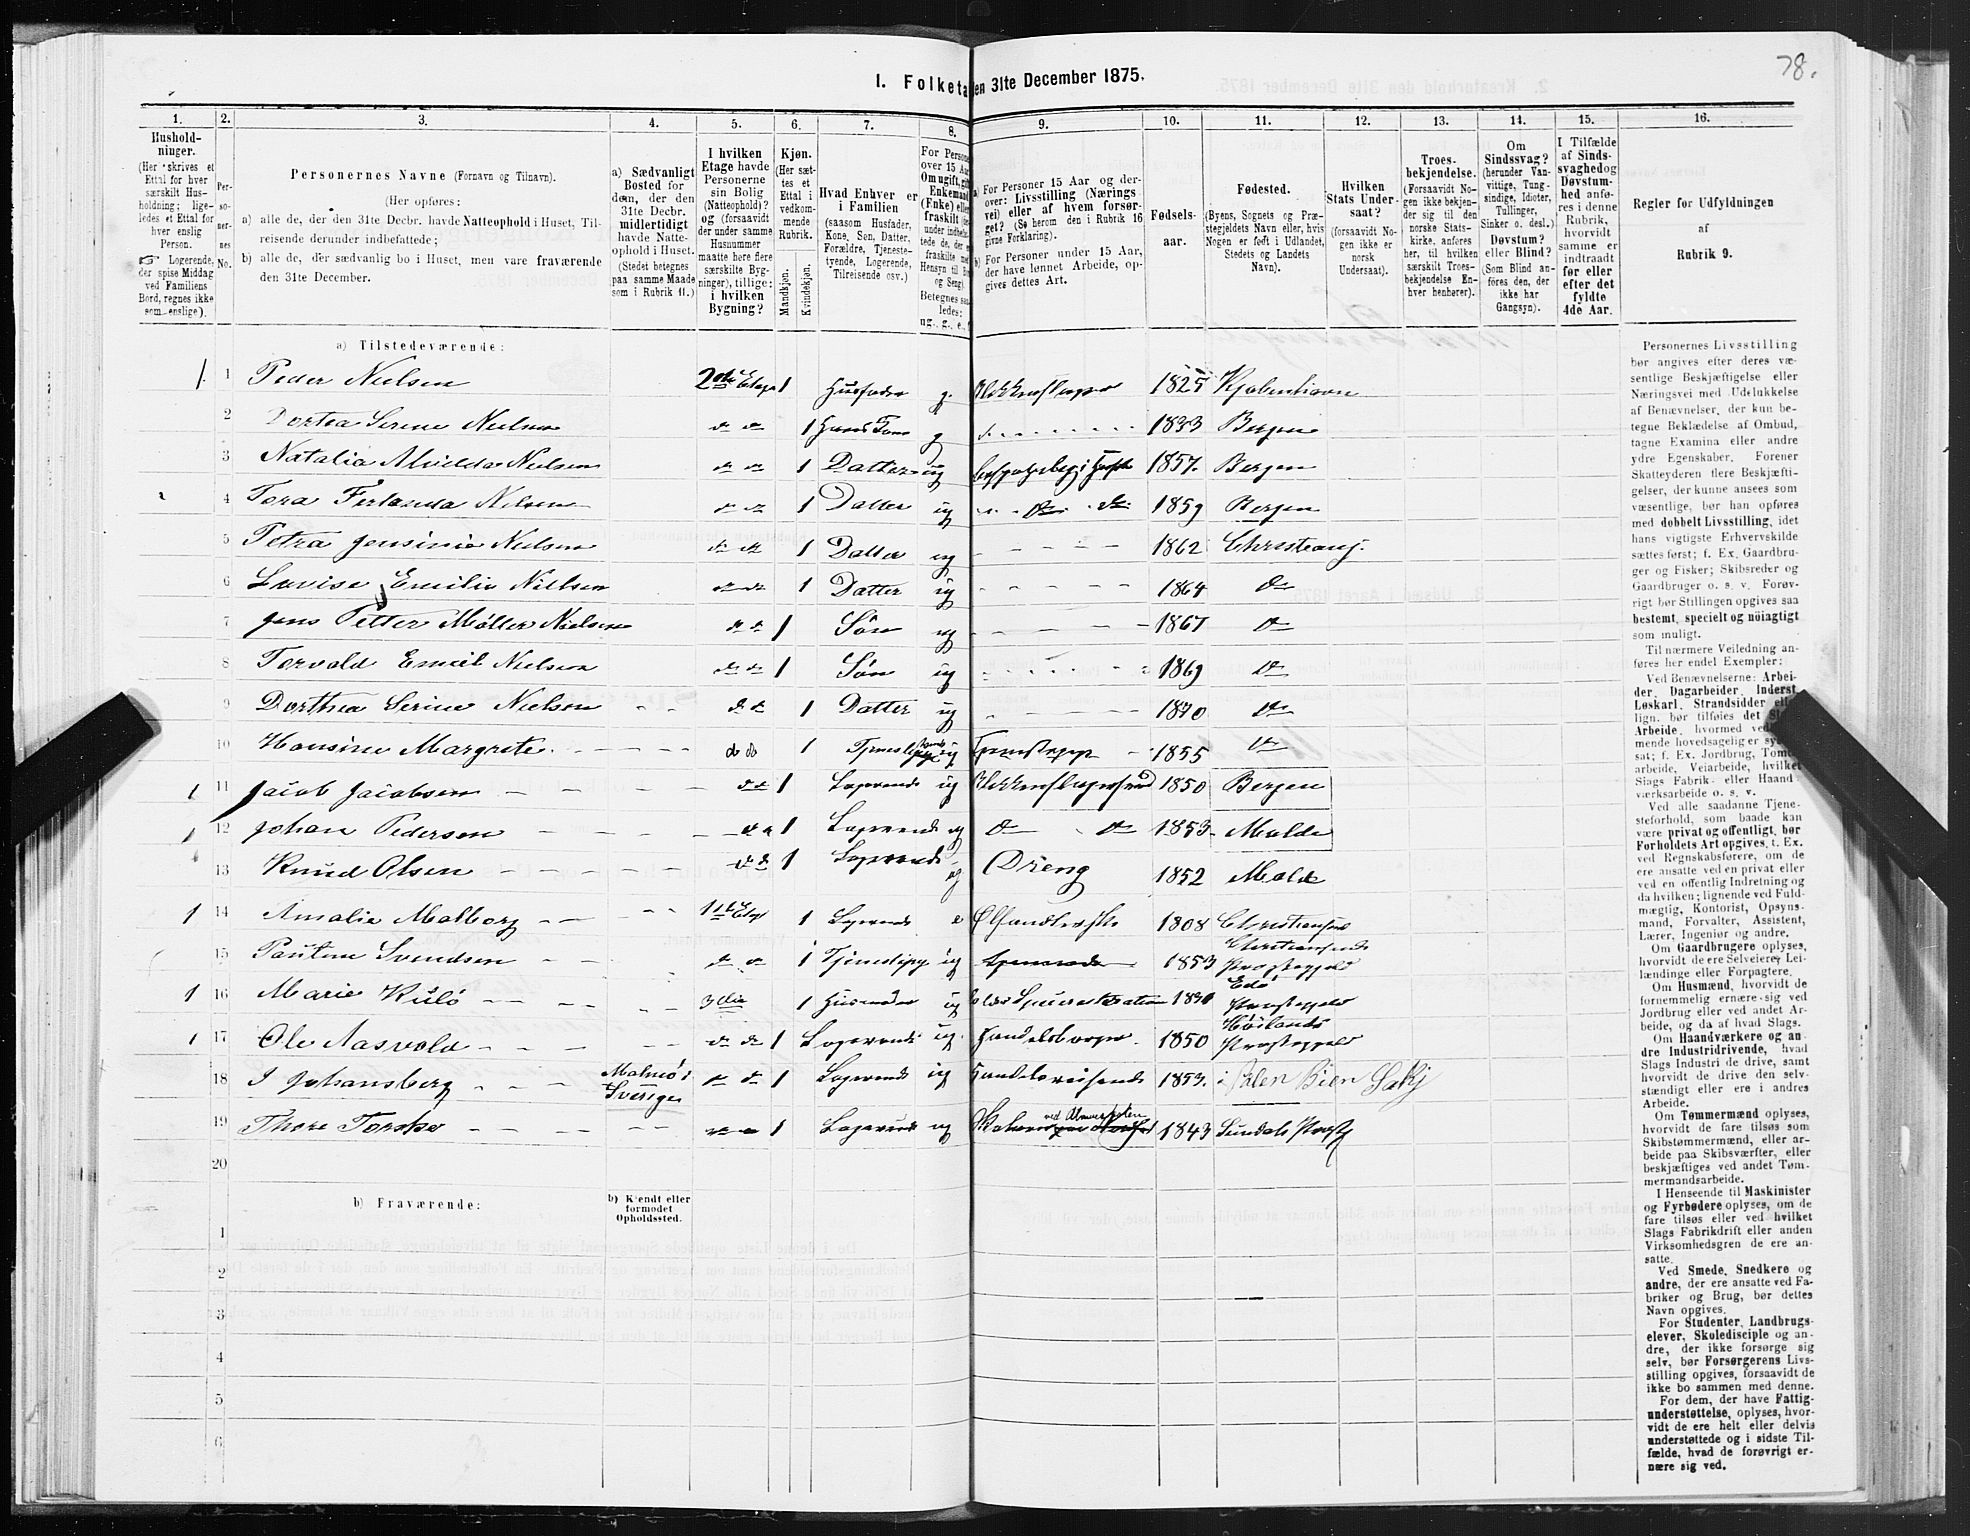 78.
I. Folketa en 31te December 1875.
1. 2. 3. 4. 5. 6. 7. 8. 9. 10. 11. 12. 13. 14. 15. 16.
Hushold-
ninger.
(Her skrives et
Ettal for hver
særskilt Hus-
holdning; lige-
ledes et Ettal for
hver enslig
Person.
Logerende,
der spise Middag
ved Familiens
Bord, regnes ikke
som enslige).
Per-
so-
ner-
nes
No.
Personernes Navne (Fornavn og Tilnavn).
(Her opføres:
a) alle de, der den 31te Decbr. havde Natteophold i Huset, Til-
reisende derunder indbefattede;
b) alle de, der sædvanlig bo i Huset, men vare fraværende
den 31te December.
a) Sædvanligt
Bosted for
dem, der den
31te Decbr.
midlertidigt
havde Natte-
ophold i Huset.
(Stedet betegnes
paa samme Maade
som i Rubrik 11.)
I hvilken
Etage havde
Personerne
sin Bolig
(Natteophold)?
og (forsaavidt
der under samme
Husnummer
maatte høre flere
særskilte Byg-
ninger), tillige:
i hvilken
Bygning?
Kjøn.
(Her sæt-
tes et
Ettal i
vedkom-
mende
Rubrik.
Mandkjøn.
Kvindekjøn.
Hvad Enhver er
i Familien
(saasom Husfader,
Kone, Søn, Datter,
Forældre, Tjeneste-
tyende, Logerende,
Tilreisende osv.)
For Persone
over 15 Aa
Om ugift, gi
Enkemand
(Enke) elle
fraskilt
under indbe
tede de, der
fraskilte m
Hensyn til B
og Seng).
Betegnes saa
ledes:
ug., g., e.,
a) For Personer 15 Aar og der-
over: Livsstilling (Nærings-
vei) eller af hvem forsør-
get? (Se herom den i Rubrik 16
givne Forklaring).
b) For Personer under 15 Aar,
der have lønnet Arbeide, op-
gives dettes Art.
Fødsels-
aar.
Fødested.
(Byens, Sognets og Præ-
stegjeldets Navn eller, hvis
Nogen er født i Udlandet,
Stedets og Landets
Navn).
Hvilken
Stats Under-
saat?
(forsaavidt No-
gen ikke er
norsk
Undersaat).
Troes-
bekjendelse.
(Forsaavidt No-
gen ikke bekjen-
der sig til den
norske Stats-
kirke, anføres
her, til hvilken
særskilt Troes-
bekjendelse En-
hver henhører).
Om
Sindssvag?
(herunder Van-
vittige, Tung-
sindige, Idioter,
Tullinger,
Sinker o. desl.)
Døvstum?
eller Blind?
(Som Blind an-
føres den, der
ikke har
Gangsyn).
I Tilfælde
af Sinds-
svaghedog
Døvstum-
hed anfø-
res i denne
Rubrik,
hvorvidt
samme er
indtraadt
før eller
efter det
fyldte
4de Aar.
Regler for Udfyldningen
af
Rubrik 9.
a) Tilstedeværende:
1 1 Peder Nielsen 2den Etage 1 Husfader g. Blikkenslager 1825 Kjøbenhavn
2 Dortea Serine Nielsen do do 1 Hans Kone g 1833 Bergen
3 Natalia Alvilda Nielsen do do 1 Datter ug 1857. Bergen
4 Tora Ferlanda Nielsen do do 1 Datter ug do do 1859 Bergen
5 Petra Jensinie Nielsen do do 1 Datter ug 1862 Christians.
6 Lovise Emilie Nielsen do do 1 Datter ug 1864 do
7 Jens Petter Møller Nielsen do do 1 Søn ug 1867 do
8 Torvald Emiel Nielsen do do 1 Søn ug 1869 do
9 Dorthea Serine Nielsen do do 1 Datter ug 1870 do
10 Hansine Margrete do do 1 ug Tjenstepige 1855 do
1 11 Jacob Jacobsen do 1 Logerende ug Blikkenslagersvend 1850 Bergen
1 12 Johan Pedersen do 1 Logerende ug do do 1853 Molde
13 Knud Olsen do 1 Logerende ug Dreng 1852 Molde
1 14 Amalie Malborg 1ste Etage 1 Logerende e Ølhandlerske 1808 Christiansund
15 Pauline Svendsen do do 1 Tjenestepige ug 1853 Christiansunds Præstegjeld
1 16 Marie Kulø 3die 1 Husmoder ug Edø Præstegjeld
1 17 Ole Aasvold do do 1 Logerende ug. 1850 Høilands Præstegjeld
18 J Johansberg Malmø i Sverige do do 1 Logerende ug Handelsreisende 1853.
19 Thore Torske 1 Logerende ug 1843 Sundals Præstg
20
b) Fraværende:
b) Kjendt eller
formodet
Opholdssted.
1
2
3
4
5
6
Personernes Livsstilling
bør angives efter deres væ-
sentlige Beskjæftigelse eller
Næringsvei med Udelukkelse
af Benævnelser, der kun be-
tegne Beklædelse af Ombud,
tagne Examina eller andre
ydre Egenskaber. Forener
Skatteyderen flere Beskjæfti-
gelser, der kunne ansees som
væsentlige, bør han opføres
med dobbelt Livsstilling, idet
hans vigtigste Erhvervskilde
sættes først; f. Ex. Gaardbru-
ger og Fisker; Skibsreder og
Gaardbruger o. s. v. Forøv-
rigt bør Stillingen opgives saa
bestemt, specielt og nöiagtigt
som muligt.
Til nærmere Veiledning an-
føres her endel Exempler:
Ved Benævnelserne: Arbei-
der, Dagarbeider, Inderst,
Løskarl, Strandsidder el
lign. bør tilføies det Sl
Arbeide, hvormed ved
mende hovedsagelig er sys
sat; f. Ex. Jordbrug, Tomt
arbeide, Veiarbeide, hvilket
Slags Fabrik- eller Haand-
værksarbeide o. s. v.
Ved alle saadanne Tjene-
steforhold, som baade kan
være privat og offentligt, bør
Forholdets Art opgives, f. Ex.
ved Regnskabsførere, om de
ere ansatte ved en privat eller
ved en offentlig Indretning og
da hvilken; lignende ved Fuld-
mæglig, Kontorist, Opsyns-
mand, Forvalter, Assistent,
Lærer, Ingeniør og andre.
Om Gaardbrugere oplyses,
hvorvidt de ere Selveiere, Lei-
lændinge eller Forpagtere.
Om Husmænd, hvorvidt de
fornemmelig ernære sig ved
Jordbrug eller ved andet Ar-
beide, og da af hvad Slags.
Om Haandværkere og an-
dre Industridrivende, hvad
Slags Industri de drive, samt
hvorvidt de drive den selv-
stændigt eller ere i andres
Arbeide.
Om Tømmermænd oplyses,
hvorvidt de fare tilsøs som
Skibstømmermænd, eller ar-
beide paa Skibsværfter, eller
beskjæftiges ved andet Tøm-
mermandsarbeide.
I Henseende til Maskinister
og Fyrbødere oplyses, om de
fare tilsøs eller ved hvilket
Slags Fabrikdrift eller anden
Virksomhedsgren de ere an-
satte.
Ved Smede, Snedkere og
andre, der ere ansatte ved Fa-
briker og Brug, bør dettes
Navn opgives.
For Studenter, Landbrugs-
elever, Skoledisciple og an-
dre, der ikke forsørge sig
selv, bør Forsørgerens Livs-
stilling opgives, forsaavidt de
ikke bo sammen med denne.
For dem, der have Fattig-
understøttelse, oplyses, hvor-
vidt de ere helt eller delvis
understøttede og i sidste Til-
fælde, hvad de forøvrigt er-
nære sig ved.